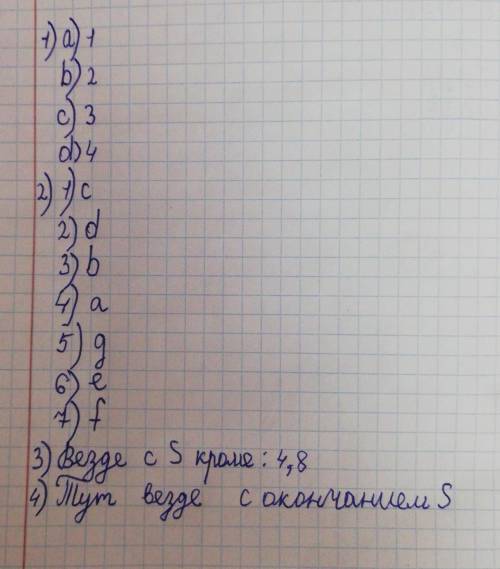 1) a) 1
b) 2
c) 3
d) 4
2) 1) c
2) d
3) b
4) a
5) g
6) e
7) f
3) Везде с S кроме: 4,8
4) Тут везде с окончанием S